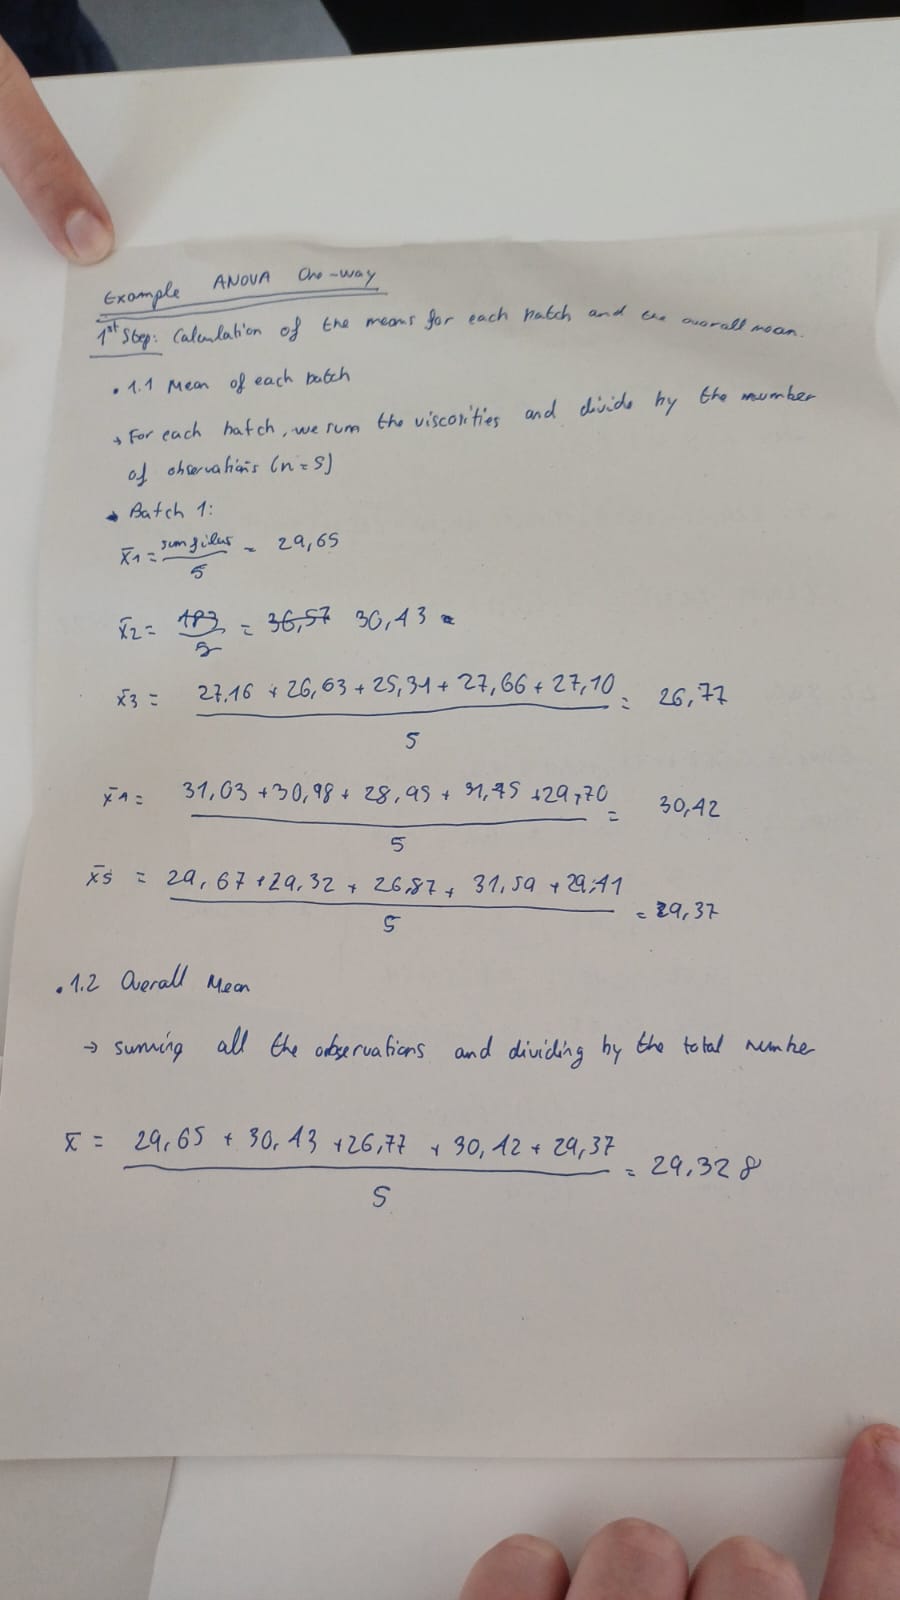 Example ANOVA One-way
1st Step: Calculation of the means for each batch and the overall mean.
• 1.1 Mean of each batch
→ For each batch, we sum the viscosities and divide by the number
of observations (n = 5)
→ Batch 1:
x̄1 = / 5 = 29,65
x̄2 = 183 / 5 = 36,57 30,43
x̄3 = 27,16 + 26,63 + 25,31 + 27,66 + 27,10 / 5 = 26,77
x̄4 = 31,03 + 30,98 + 28,95 + 31,45 + 29,70 / 5 = 30,42
x̄5 = 29,67 + 29,32 + 26,87 + 31,59 + 29,41 / 5 = 29,37
• 1.2 Overall Mean
→ suming all the observations and dividing by the total number
x̄ = 29,65 + 30,43 + 26,77 + 30,42 + 29,37 / 5 = 29,328